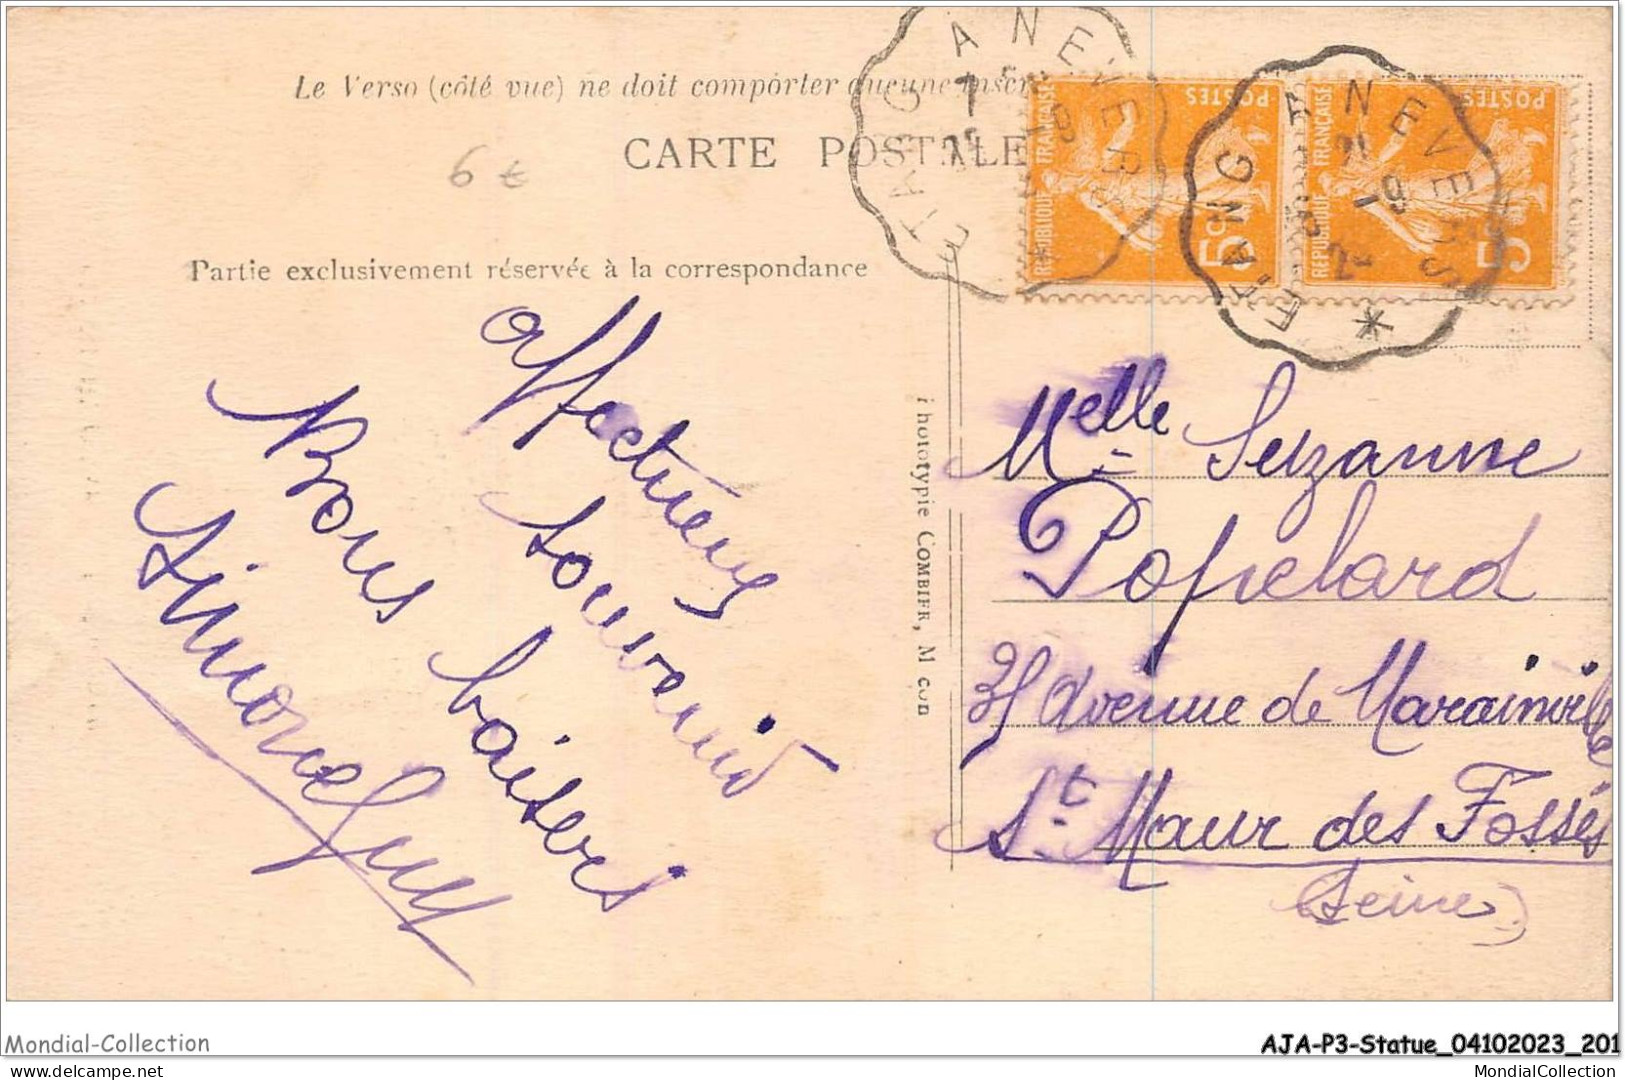 Le Verso (côté vue) ne doit comporter aucune inscr
CARTE POSTALE
6 €
Partie exclusivement réservée à la correspondance
ETANG A NEVERS
ETANG A NEVERS
POSTES
REPUBLIQUE FRANÇAISE
5c
POSTES
REPUBLIQUE FRANÇAISE
5c
affectueux
souvenir
Bons baisers
Simone
Phototypie COMBIER, Macon
Melle Suzanne
Popelard
Avenue de Marainville
St Maur des Fossés
(Seine)
Mondial-Collection
AJA-P3-Statue_04102023_201
MondialCollection